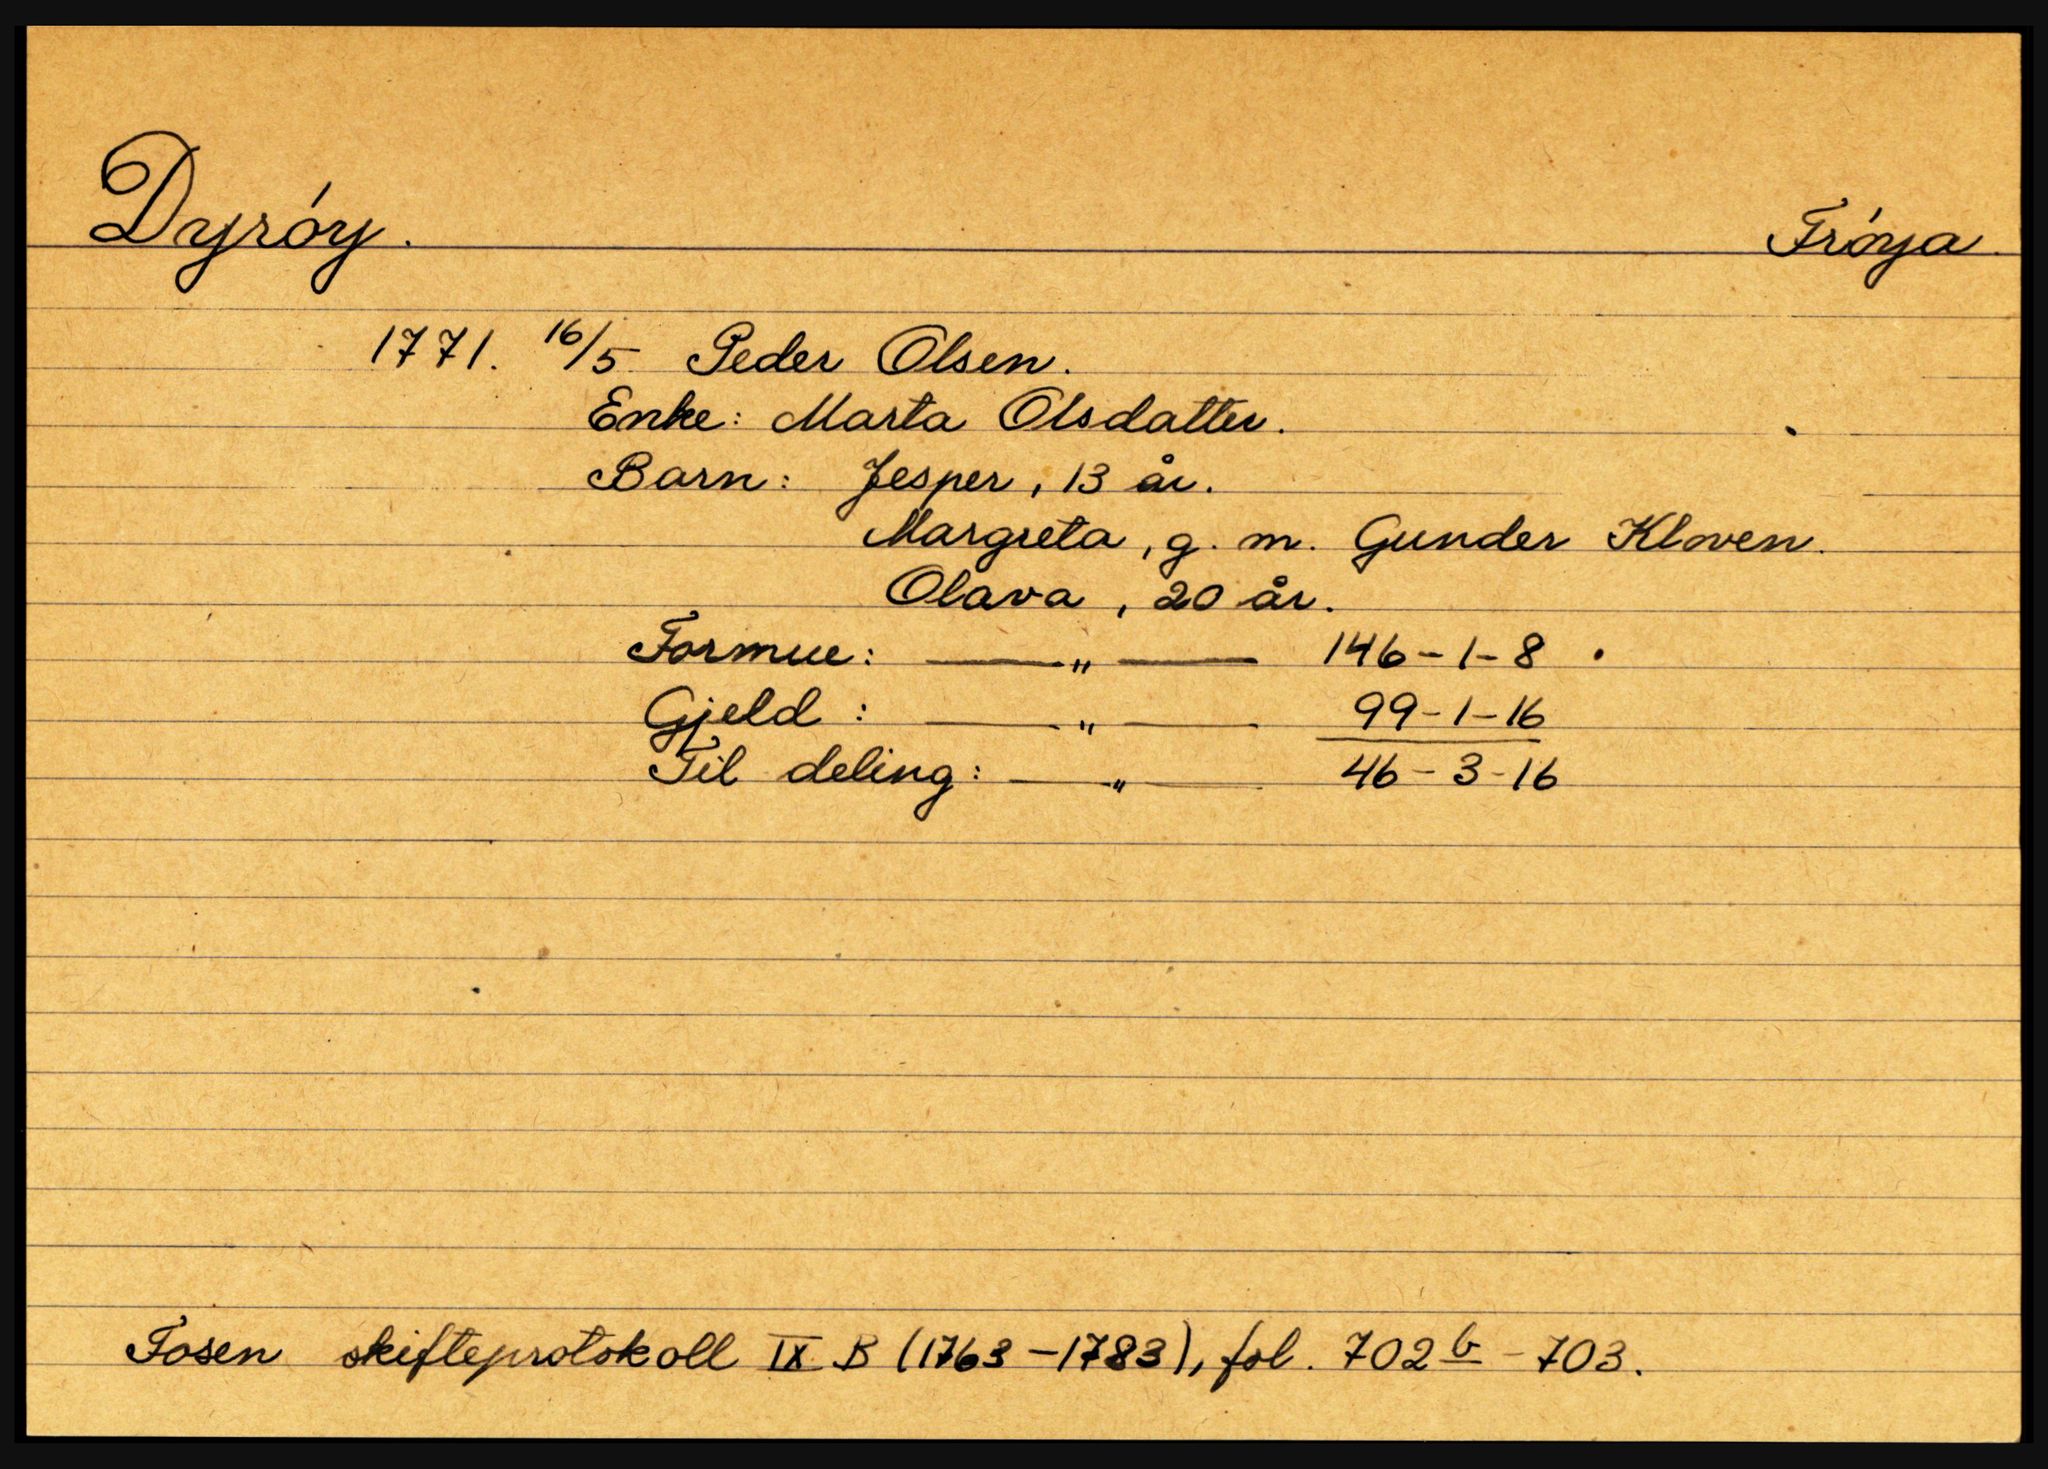 Dyröy. Fröya.
1771. 16/5 Peder Olsen.
Enke: Marta Olsdatter.
Barn: Jesper, 13 år.
Margreta, g. m. Gunder Kloven.
Olava, 20 år.
Formue: — " — 146-1-8
Gjeld: — " — 99-1-16
Til deling: — " — 46-3-16
Fosen skifteprotokoll IX B (1763-1783), fol. 702b-703.